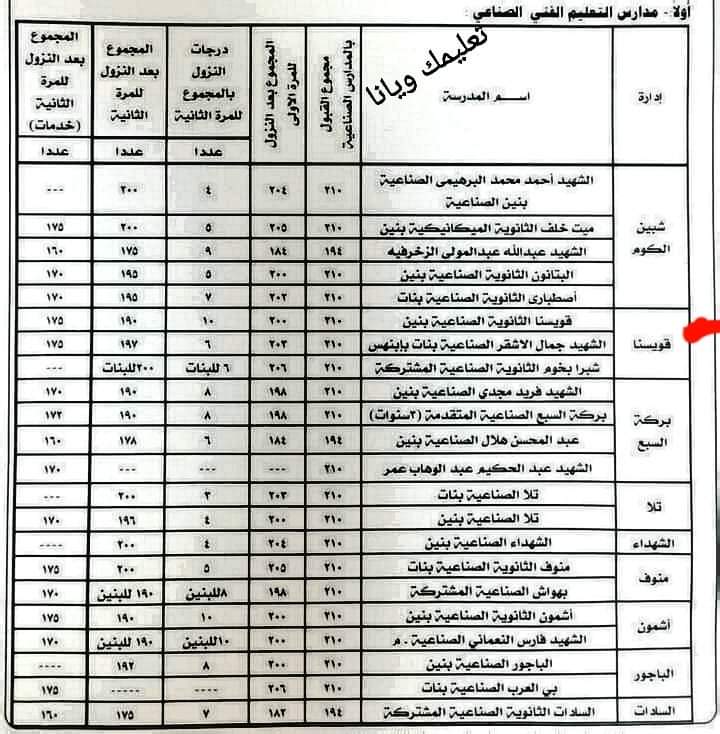 أولاً:- مدارس التعليم الفني الصناعي:
تعليمك ويانا
إدارة | اسم المدرسة | مجموع القبول بالمدارس الصناعية | المجموع بعد النزول للمرة الأولى | درجات النزول بالمجموع للمرة الثانية | المجموع بعد النزول للمرة الثانية | المجموع بعد النزول للمرة الثانية (خدمات)
عددا | عددا | عددا
شبين الكوم | الشهيد أحمد محمد البرهيمى الصناعية بنين الصناعية | ٢١٠ | ٢٠٤ | ٤ | ٢٠٠ | ---
ميت خلف الثانوية الميكانيكية بنين | ٢١٠ | ٢٠٥ | ٥ | ٢٠٠ | ١٧٥
الشهيد عبدالله عبدالمولى الزخرفيه | ١٩٤ | ١٨٤ | ٩ | ١٧٥ | ١٦٠
البتانون الثانوية الصناعية بنين | ٢١٠ | ٢٠٠ | ٥ | ١٩٥ | ١٧٠
أصطبارى الثانوية الصناعية بنات | ٢١٠ | ٢٠٢ | ٧ | ١٩٥ | ١٧٠
قويسنا | قويسنا الثانوية الصناعية بنين | ٢١٠ | ٢٠٠ | ١٠ | ١٩٠ | ١٧٥
الشهيد جمال الاشقر الصناعية بنات بإبنهس | ٢١٠ | ٢٠٣ | ٦ | ١٩٧ | ١٧٥
شبرا بخوم الثانوية الصناعية المشتركة | ٢١٠ | ٢٠٦ | ٦ للبنات | ٢٠٠للبنات | ---
بركة السبع | الشهيد فريد مجدي الصناعية بنين | ٢١٠ | ١٩٨ | ٨ | ١٩٠ | ١٧٠
بركة السبع الصناعية المتقدمة (٣سنوات) | ٢١٠ | ١٩٨ | ٨ | ١٩٠ | ١٧٢
عبد المحسن هلال الصناعية بنين | ١٩٤ | ١٨٤ | ٦ | ١٧٨ | ١٦٠
الشهيد عبد الحكيم عبد الوهاب عمر | ٢١٠ | --- | --- | --- | ١٧٠
تلا | تلا الصناعية بنات | ٢١٠ | ٢٠٣ | ٣ | ٢٠٠ | ---
تلا الصناعية بنين | ٢١٠ | ٢٠٠ | ٤ | ١٩٦ | ١٧٠
الشهداء | الشهداء الصناعية بنين | ٢١٠ | ٢٠٤ | ٤ | ٢٠٠ | ----
منوف | منوف الثانوية الصناعية بنات | ٢١٠ | ٢٠٥ | ٥ | ٢٠٠ | ١٧٥
بهواش الصناعية المشتركة | ٢١٠ | ١٩٨ | ٨للبنين | ١٩٠ للبنين | ١٧٠
أشمون | أشمون الثانوية الصناعية بنين | ٢١٠ | ٢٠٠ | ١٠ | ١٩٠ | ١٧٥
الشهيد فارس النعماني الصناعية .م | ٢١٠ | ٢٠٠ | ١٠للبنين | ١٩٠ للبنين | ١٧٠
الباجور | الباجور الصناعية بنين | ٢١٠ | ٢٠٠ | ٨ | ١٩٢ | ----
بي العرب الصناعية بنات | ٢١٠ | ٢٠٦ | ---- | ----- | ١٧٥
السادات | السادات الثانوية الصناعية المشتركة | ١٩٤ | ١٨٢ | ٧ | ١٧٥ | ١٦٠